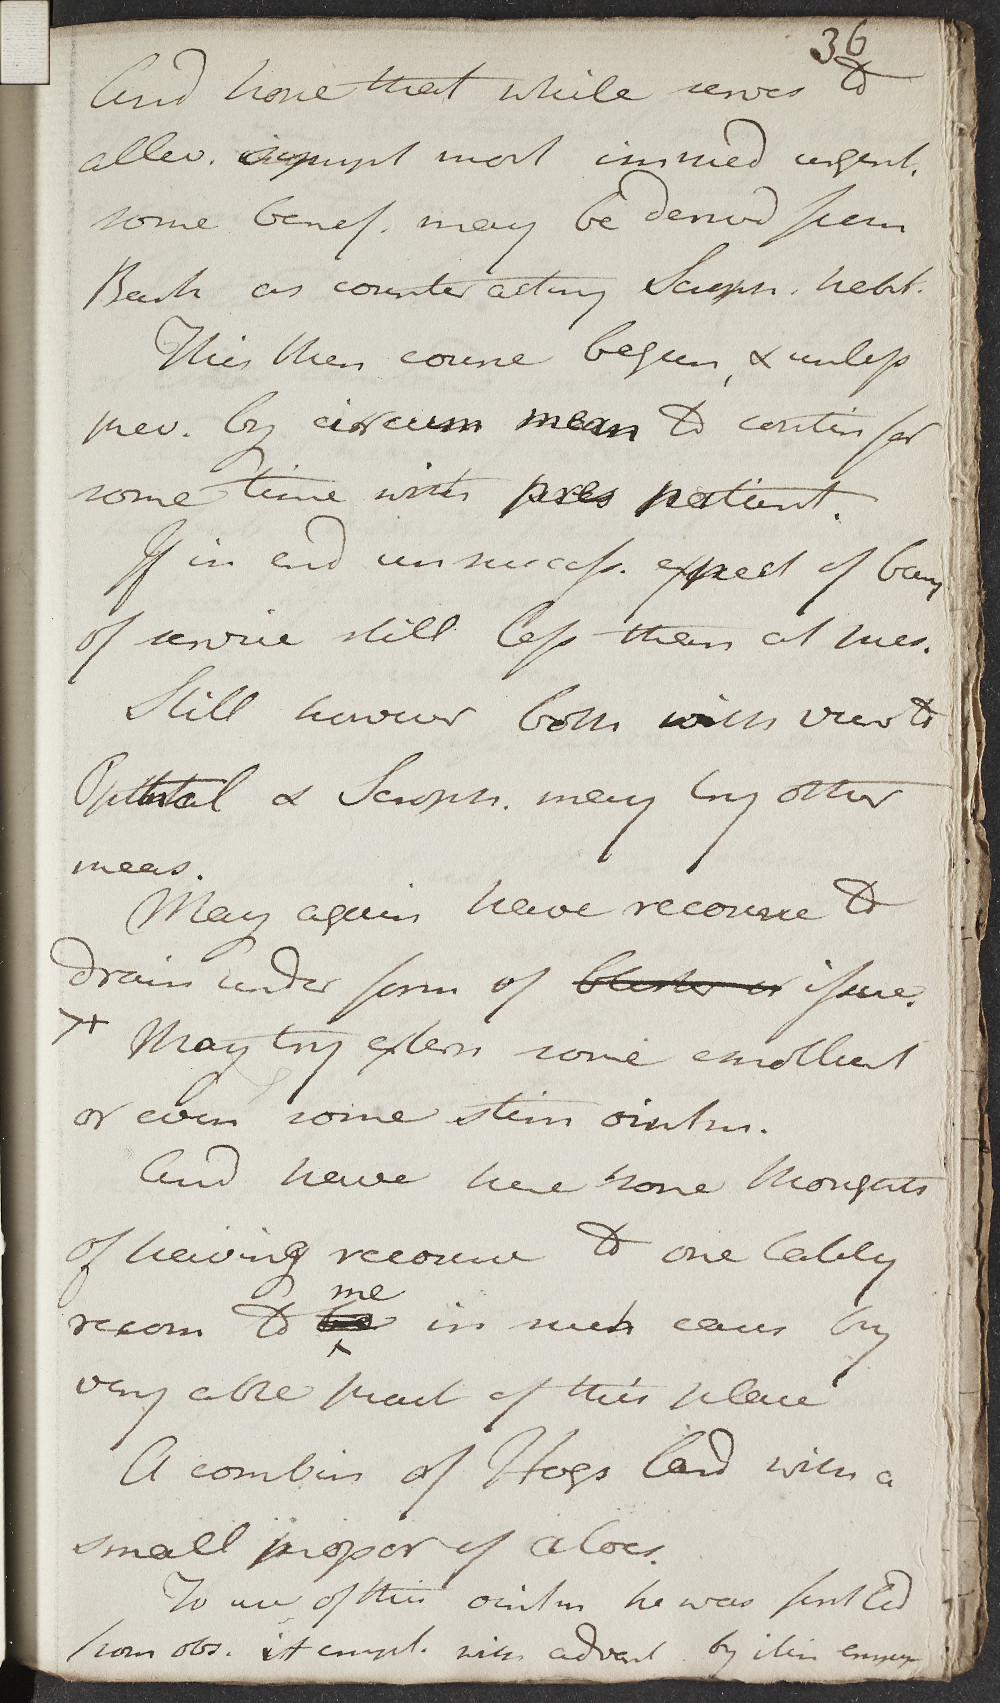 36
And hope that while serves to
allev. sympt most immed urgent.
some benef. may be derivd from
Bark as counteracting Scroph. habit.
This then course begun, & unless
prev. by circum mean to contin for
some time with pres patient.
If in end unsuccess. expect of being
of service still less than at pres.
Still however both with view to
Ophthal & Scroph. may try other
meas.
May again have recourse to
drain under form of blister or issue.
May try extern some emollient
or even some stim ointm.
And have here some thoughts
of having recourse to one lately
me
recom to in such cases by
very able pract of this place
A combin of Hogs lard with a
small propor of aloes.
To use of this ointm he was first led
from obs. it empl. with advant by itin